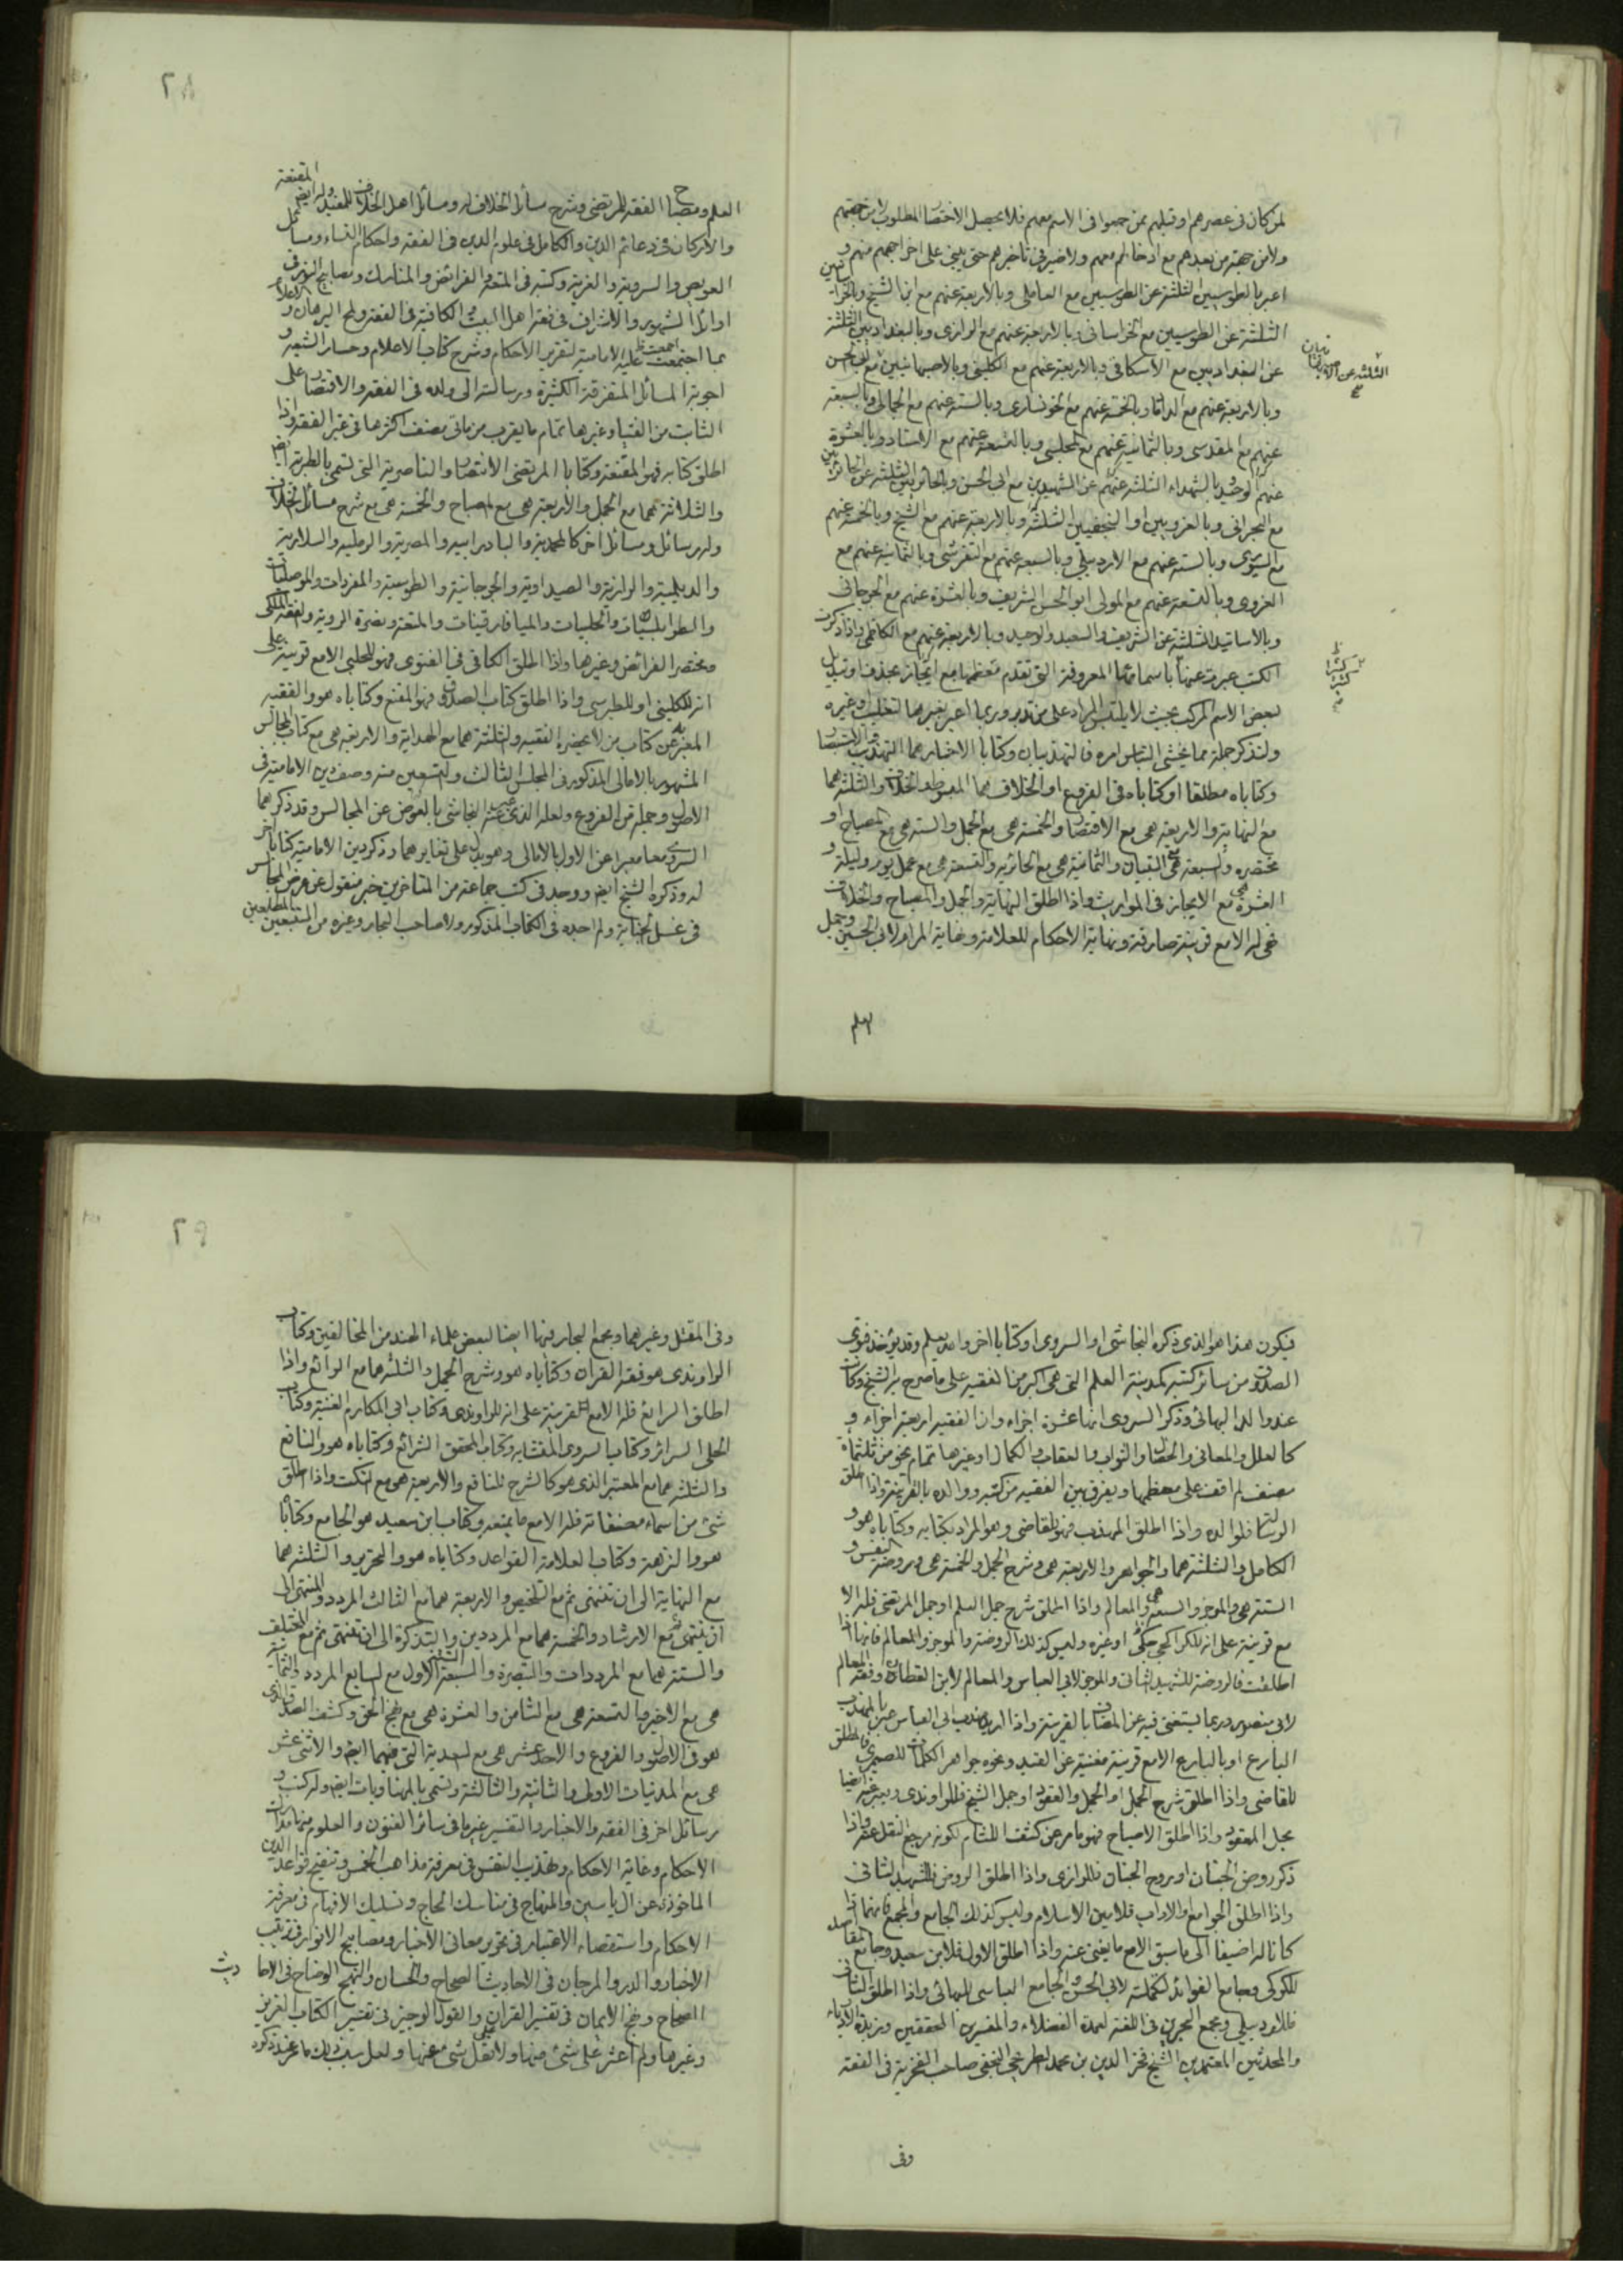 لمن كان في عصرهم او قبلهم ممن جمعوا في الاسم معهم فلا يحصل الاختصار المطلوب لا من جهتهم
ولا من جهة من بعدهم مع ادخالهم معهم ولا ضير في تأخيرهم حتى يبنى على اخراجهم منهم و
اعبر بالطوسيين الثلثة عن الطوسيين مع العاملي وبالاربعة عنهم مع ابن الشيخ وبالخراسانيين
الثلثة عن الطوسيين مع الخراساني وبالاربعة عنهم مع الرازي وبالبغداديين الثلثة
عن البغداديين مع الاسكافي وبالاربعة عنهم مع الكليني وبالاصبهانيين مع ابي الحسن
الثلثة عن الاصبهانيان
وبالاربعة عنهم مع الداماد وبالخمسة عنهم مع الخونساري وبالستة عنهم مع الجمالي وبالسبعة
عنهم مع المقدسي وبالثمانية عنهم مع المجلسي وبالتسعة عنهم مع الاستاد وبالعشرة
عنهم مع الوحيد وبالشهداء الثلثة عنهم عن الشهيدين مع ابي الحسن وبالحائريين الثلثة عن الحائريين
مع البحراني وبالغرويين او النجفيين الثلثة وبالاربعة عنهم مع الشيخ وبالخمسة عنهم
مع السيوري وبالستة عنهم مع الاردبيلي وبالسبعة عنهم مع التفرشي وبالثمانية عنهم مع
الغروي وبالتسعة عنهم مع المولى ابو الحسن الشريف وبالعشرة عنهم مع الجرجاني
وبالاساتيد الثلثة عن الشريف والسعيد والوحيد وبالاربعة عنهم مع الكاظمي واذا ذكرت
الكتب عبرت عنها باسمائها المعروفة التي تقدم معظمها مع ايجاز بحذف او تبديل
لبعض الاسم المركب بحيث لا يلتبس المراد على من تدبر وربما اعبر بغيرها لتغليب او غيره
ولنذكر جملة مما يخشى التباس امره فالتهذيبان وكتابا الاخبار هما التهذيب والاستبصار
وكتاباه مطلقا او كتاباه في الفروع او الخلاف هما المبسوط والخلاف والثلثة هما
مع النهاية والاربعة هي مع الاقتصاد والخمسة هي مع الجمل والستة هي مع المصباح او
مختصره والسبعة هي مع التبيان والثمانية هي مع الحائرية والتسعة هي مع عمل يوم وليلة و
العشرة هي مع الايجاز في المواريث واذا اطلق النهاية والجمل والمصباح والخلاف
فهي له الا مع قرينة صارفة ونهاية الاحكام للعلامة وغاية المرام لابي الحسين وجمل
العلم
العلم ومصباح الفقه للمرتضى وشرح مسائل الخلاف له ومسائل اهل الخلاف للمفيد وله ايضا المقنعة
والاركان في دعائم الدين والكامل في علوم الدين في الفقه واحكام النساء ومسائل
العويص والسروية والغرية وكتبه في المتعة والفرائض والمناسك ومصابيح النور في
اوائل الشهور والاشراف في فقه اهل البيت الكافية في الفقه ولمح البرهان والاعلام
بما اجتمعت عليه الامامية لتقرير الاحكام وشرح كتاب الاعلام ومسار الشيعة و
اجوبة المسائل المتفرقة الكثيرة ورسالته الى ولده في الفقه والاقتصار على
الثابت من الفتيا وغيرها تمام ما يقرب من ماتي مصنف اكثرها في غير الفقه واذا
اطلق كتابه فهو المقنعة وكتابا المرتضى الانتصار والناصرية التي تسمى بالطبرية ايضا
والثلاثة هما مع الجمل والاربعة هي مع المصباح والخمسة هي مع شرح مسائل الخلاف
وله رسائل ومسائل اخر كالمحمدية والبادرائية والمصرية والرملية والسلارية
والديلمية والرازية والصيداوية والجرجانية والطوسية والمفردات والموصليات
والطرابلسيات والحلبيات والميافارقينات والمتعة ونصرة الروية والفقه الملكي
ومختصر الفرائض وغيرها واذا اطلق الكافي في الفتوى فهو للحلبي الا مع قرينة على
انه للكليني او للطبرسي واذا اطلق كتاب الصدوق فهو المقنع وكتاباه هو والفقيه
المعبر به عن كتاب من لا يحضره الفقيه والثلثة هما مع الهداية والاربعة هي مع كتاب المجالس
المشهور بالامالي المذكور في المجلس الثالث والتسعين منه وصف دين الامامية في
الاصول وجملة من الفروع ولعله الذي عبر عنه النجاشي بالعوض عن المجالس وقد ذكرهما
السروي معا معبرا عن الاول بالامالي وهو يدل على تغايرهما وذكر دين الامامية كتابا اخر
له وذكره الشيخ ايضا ووجد في كتب جماعة من المتاخرين خبر منقول عن عرض المجالس
في غسل الجنابة ولم اجده في الكتاب المذكور ولا صاحب البحار وغيره من المتتبعين المطلعين
فيكون هذا هو الذي ذكره النجاشي او السروي او كتابا اخر والله يعلم وقد يؤخذ فتوى
الصدوق من سائر كتبه كمدينة العلم التي هي اكبر من الفقيه على ما صرح به الشيخ وكان
عند والد البهائي وذكر السروي انها عشرة اجزاء وان الفقيه اربعة اجزاء و
كالعلل والمعاني والخصال والثواب والعقاب والكمال وغيرها تمام نحو من ثلثمائة
مصنف لم اقف على معظمها ويفرق بين الفقيه من كتبه ووالده بالقرينة واذا اطلق
الرسالة فلوالده واذا اطلق المهذب فهو للقاضي وهو المراد بكتابه وكتاباه هو و
الكامل والثلثة هما والجواهر والاربعة هي وشرح الجمل والخمسة هي وروضة النفس و
الستة هي والموجز والسبعة هي والمعالم واذا اطلق شرح جمل العلم او جمل المرتضى فله الا
مع قرينة على انه للكراجكي او غيره وليس كذلك الروضة والموجز والمعالم فانها اذا
اطلقت فالروضة للشهيد الثاني والموجز لابي العباس والمعالم لابن القطان وفقه المعالم
لابي منصور وربما يستغنى فيه عن المضاف بالقرينة واذا اريد مهذب ابي العباس عبر بالمهذب
البارع او بالبارع الا مع قرينة مغنية عن القيد ونحوه جواهر الكلمات للصيمري فالمطلق
للقاضي واذا اطلق شرح الجمل او الجمل والعقود او جمل الشيخ فللراوندي ويعبر عنه ايضا
بحل المعقود واذا اطلق الاصباح فهو ما مر عن كشف اللثام لكونه مرجع النقل عنه واذا
ذكر روض الجنان او روح الجنان فللرازي واذا اطلق الروض فللشهيد الثاني
واذا اطلق الجوامع والاداب فلامين الاسلام وليس كذلك الجامع والمجمع فانهما اذا
كانا له اضيفا الى ما سبق الا مع ما يغني عنه واذا اطلق الاول فلابن سعيد وجامع المقاصد
للكركي وجامع الفوائد لتكملته لابي الحسن والجامع العباسي للبهائي واذا اطلق الثاني
فللاردبيلي ومجمع البحرين في اللغة لعمدة الفضلاء والمفسرين المحققين وزبدة الادباء
والمحدثين المعتمدين الشيخ فخر الدين بن محمد الطريحي النجفي صاحب الفخرية في الفقه
وفي
وفي المقتل وغيرهما ومجمع البحار فيها ايضا لبعض علماء الهند من المخالفين وكتاب
الراوندي هو فقه القران وكتاباه هو وشرح الجمل والثلثة هما مع الرائع واذا
اطلق الرائع فله الا مع القرينة على انه للراوندي وكتاب ابي المكارم الغنية وكتاب
الحلي السرائر وكتاب السروي المتشابه وكتاب المحقق الشرائع وكتاباه هو والنافع
والثلثة هما مع المعتبر الذي هو كالشرح للنافع والاربعة هو مع النكت واذا اطلق
شئ من اسماء مصنفاته فله الا مع ما يمنعه وكتاب ابن سعيد هو الجامع وكتابا
هو والنزهة وكتاب العلامة القواعد وكتاباه هو والتحرير والثلثة هما
مع النهاية الى ان تنتهي ثم مع التلخيص والاربعة هما مع الثالث المردد والمنتهى الى
ان ينتهي ثم مع الارشاد والخمسة هما مع المرددين والتذكرة الى ان تنتهي ثم مع المختلف
والستة هما مع المرددات والتبصرة والسبعة الستة الاول مع السابع المردد والثمانية
هي مع الاخير والتسعة هي مع الثامن والعشرة هي مع نهج الحق وكشف الصدق الذي
هو في الاصول والفروع والاحد عشر هي مع السعدية التي فيهما ايضا والاثنى عشر
هي مع المدنيات الاولى والثانية والثالثة وتسمى بالمهناويات ايضا وله كتب و
رسائل اخر في الفقه والاخبار والتفسير غير ما في سائر الفنون والعلوم منها مدارك
الاحكام وغاية الاحكام وتهذيب النفس في معرفة مذاهب الخمس وتنقيح قواعد الدين
الماخوذة عن ال ياسين والمنهاج في مناسك الحاج وتسليك الافهام في معرفة
الاحكام واستقصاء الاعتبار في تحرير معاني الاخبار ومصابيح الانوار في ترتيب
الاخبار والدر والمرجان في الاحاديث الصحاح والحسان والنهج الوضاح في الاحاديث
الصحاح ونهج الايمان في تفسير القران والقول الوجيز في تفسير الكتاب العزيز
وغيرها ولم اعثر على شئ منها ولا نقل شئ عنها ولعل سبب ذلك ما عن ذكره